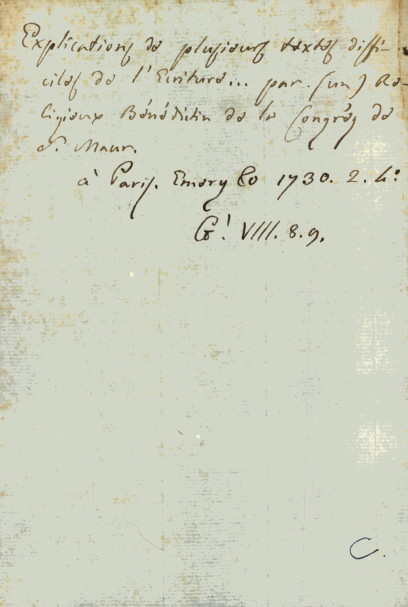 Explications de plusieurs textes diffi-
ciles de l'Ecriture... par (un) Re-
ligieux Bénédictin de la Congrég de
S. Maur.
à Paris. Emery &c 1730. 2. 4.º
G! VIII. 8. 9.
C.